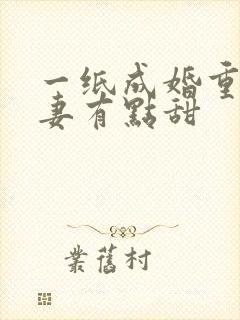 一纸成婚重
妻有點甜
業舊村